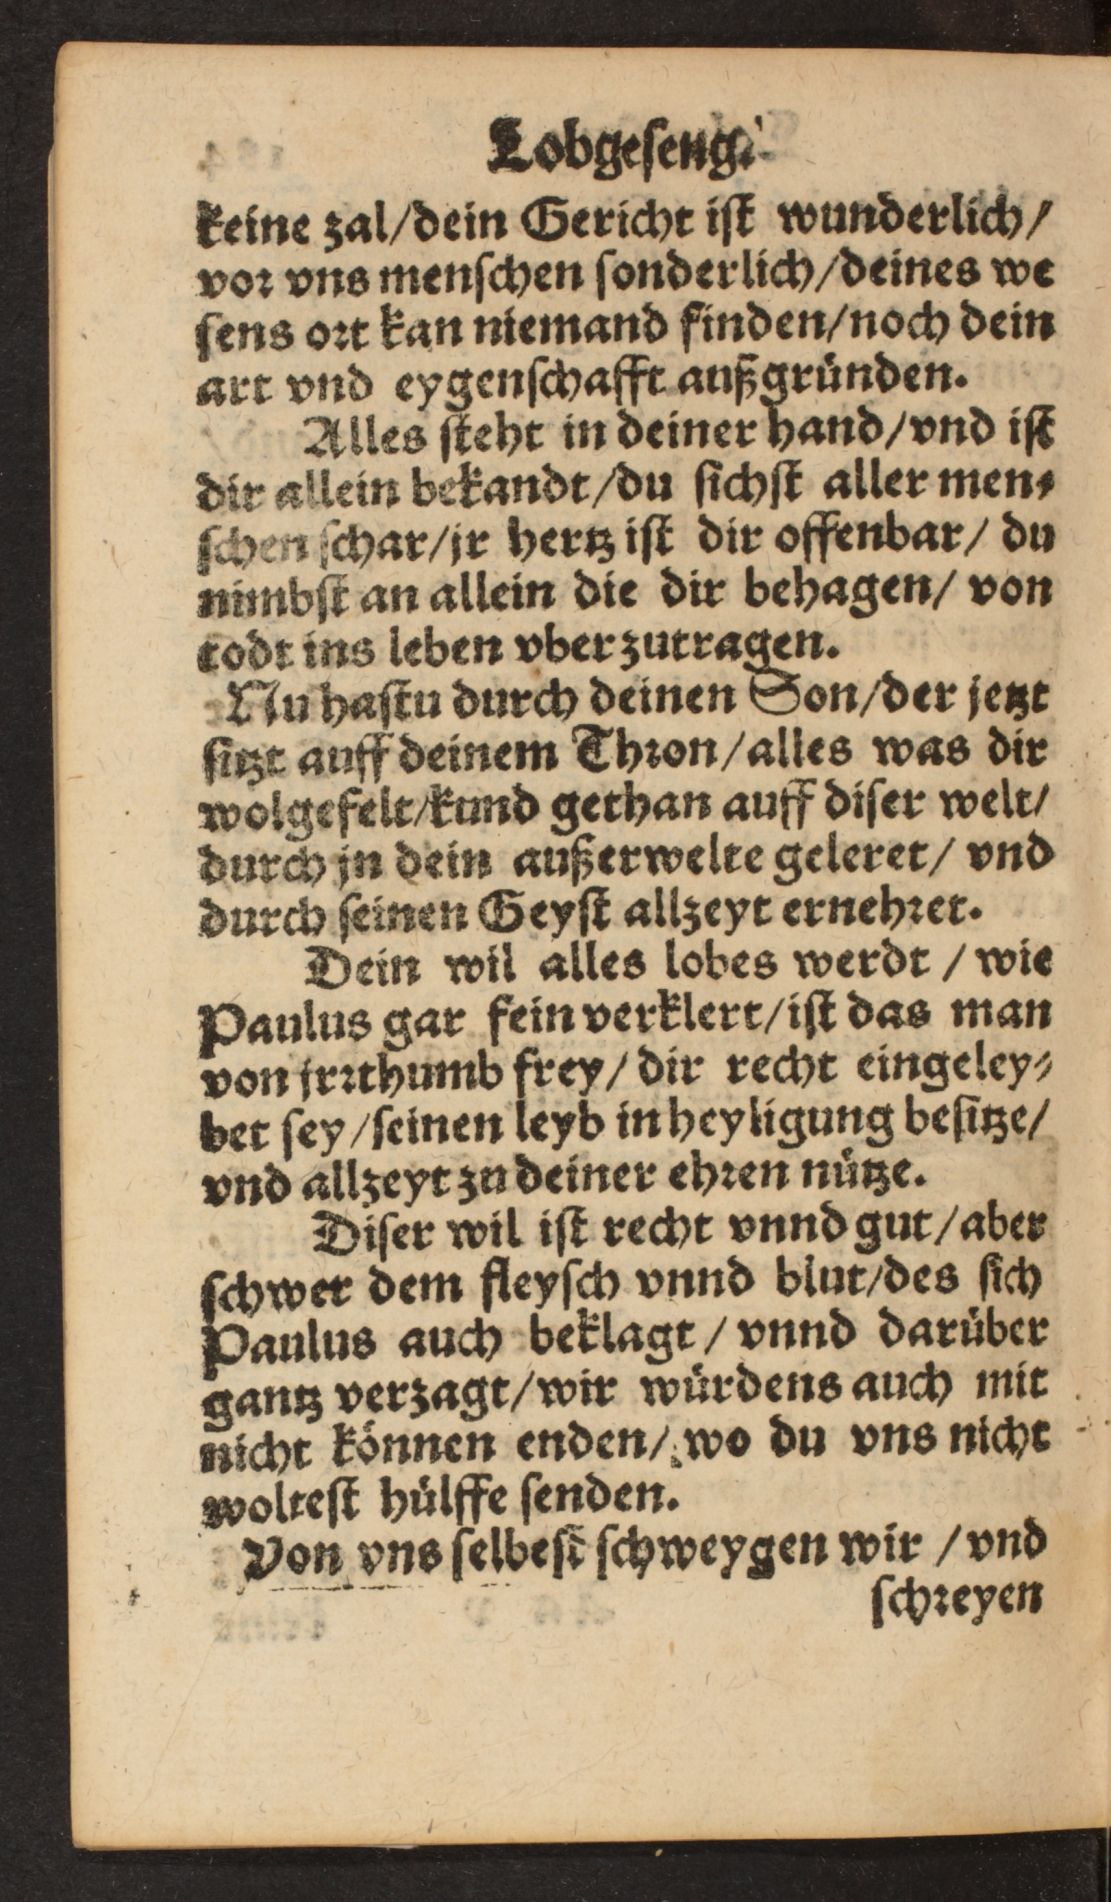 Lobgeseng.
keine zal/dein Gericht ist wunderlich/
vor vns menschen sonderlich/deines we
sens ort kan niemand finden/noch dein
art vnd eygenschafft außgründen.
Alles steht in deiner hand/vnd ist
dir allein bekandt/du sichst aller men⸗
schen schar/jr hertz ist dir offenbar/ du
nimbst an allein die dir behagen/ von
todt ins leben vberzutragen.
Nu hastu durch deinen Son/der jetzt
sitzt auff deinem Thron/alles was dir
wolgefelt/kund gethan auff diser welt/
durch jn dein außerwelte geleret/ vnd
durch seinen Geyst allzeyt ernehret.
Dein wil alles lobes werdt / wie
Paulus gar fein verklert/ist das man
von jrrthumb frey/ dir recht eingeley⸗
bet sey/seinen leyb in heyligung besitze/
vnd allzeyt zu deiner ehren nütze.
Diser wil ist recht vnnd gut/aber
schwer dem fleysch vnnd blut/des sich
Paulus auch beklagt / vnnd darüber
gantz verzagt/wir würdens auch mit
nicht können enden/ wo du vns nicht
woltest hülffe senden.
Von vns selbest schweygen wir /vnd
schreyen